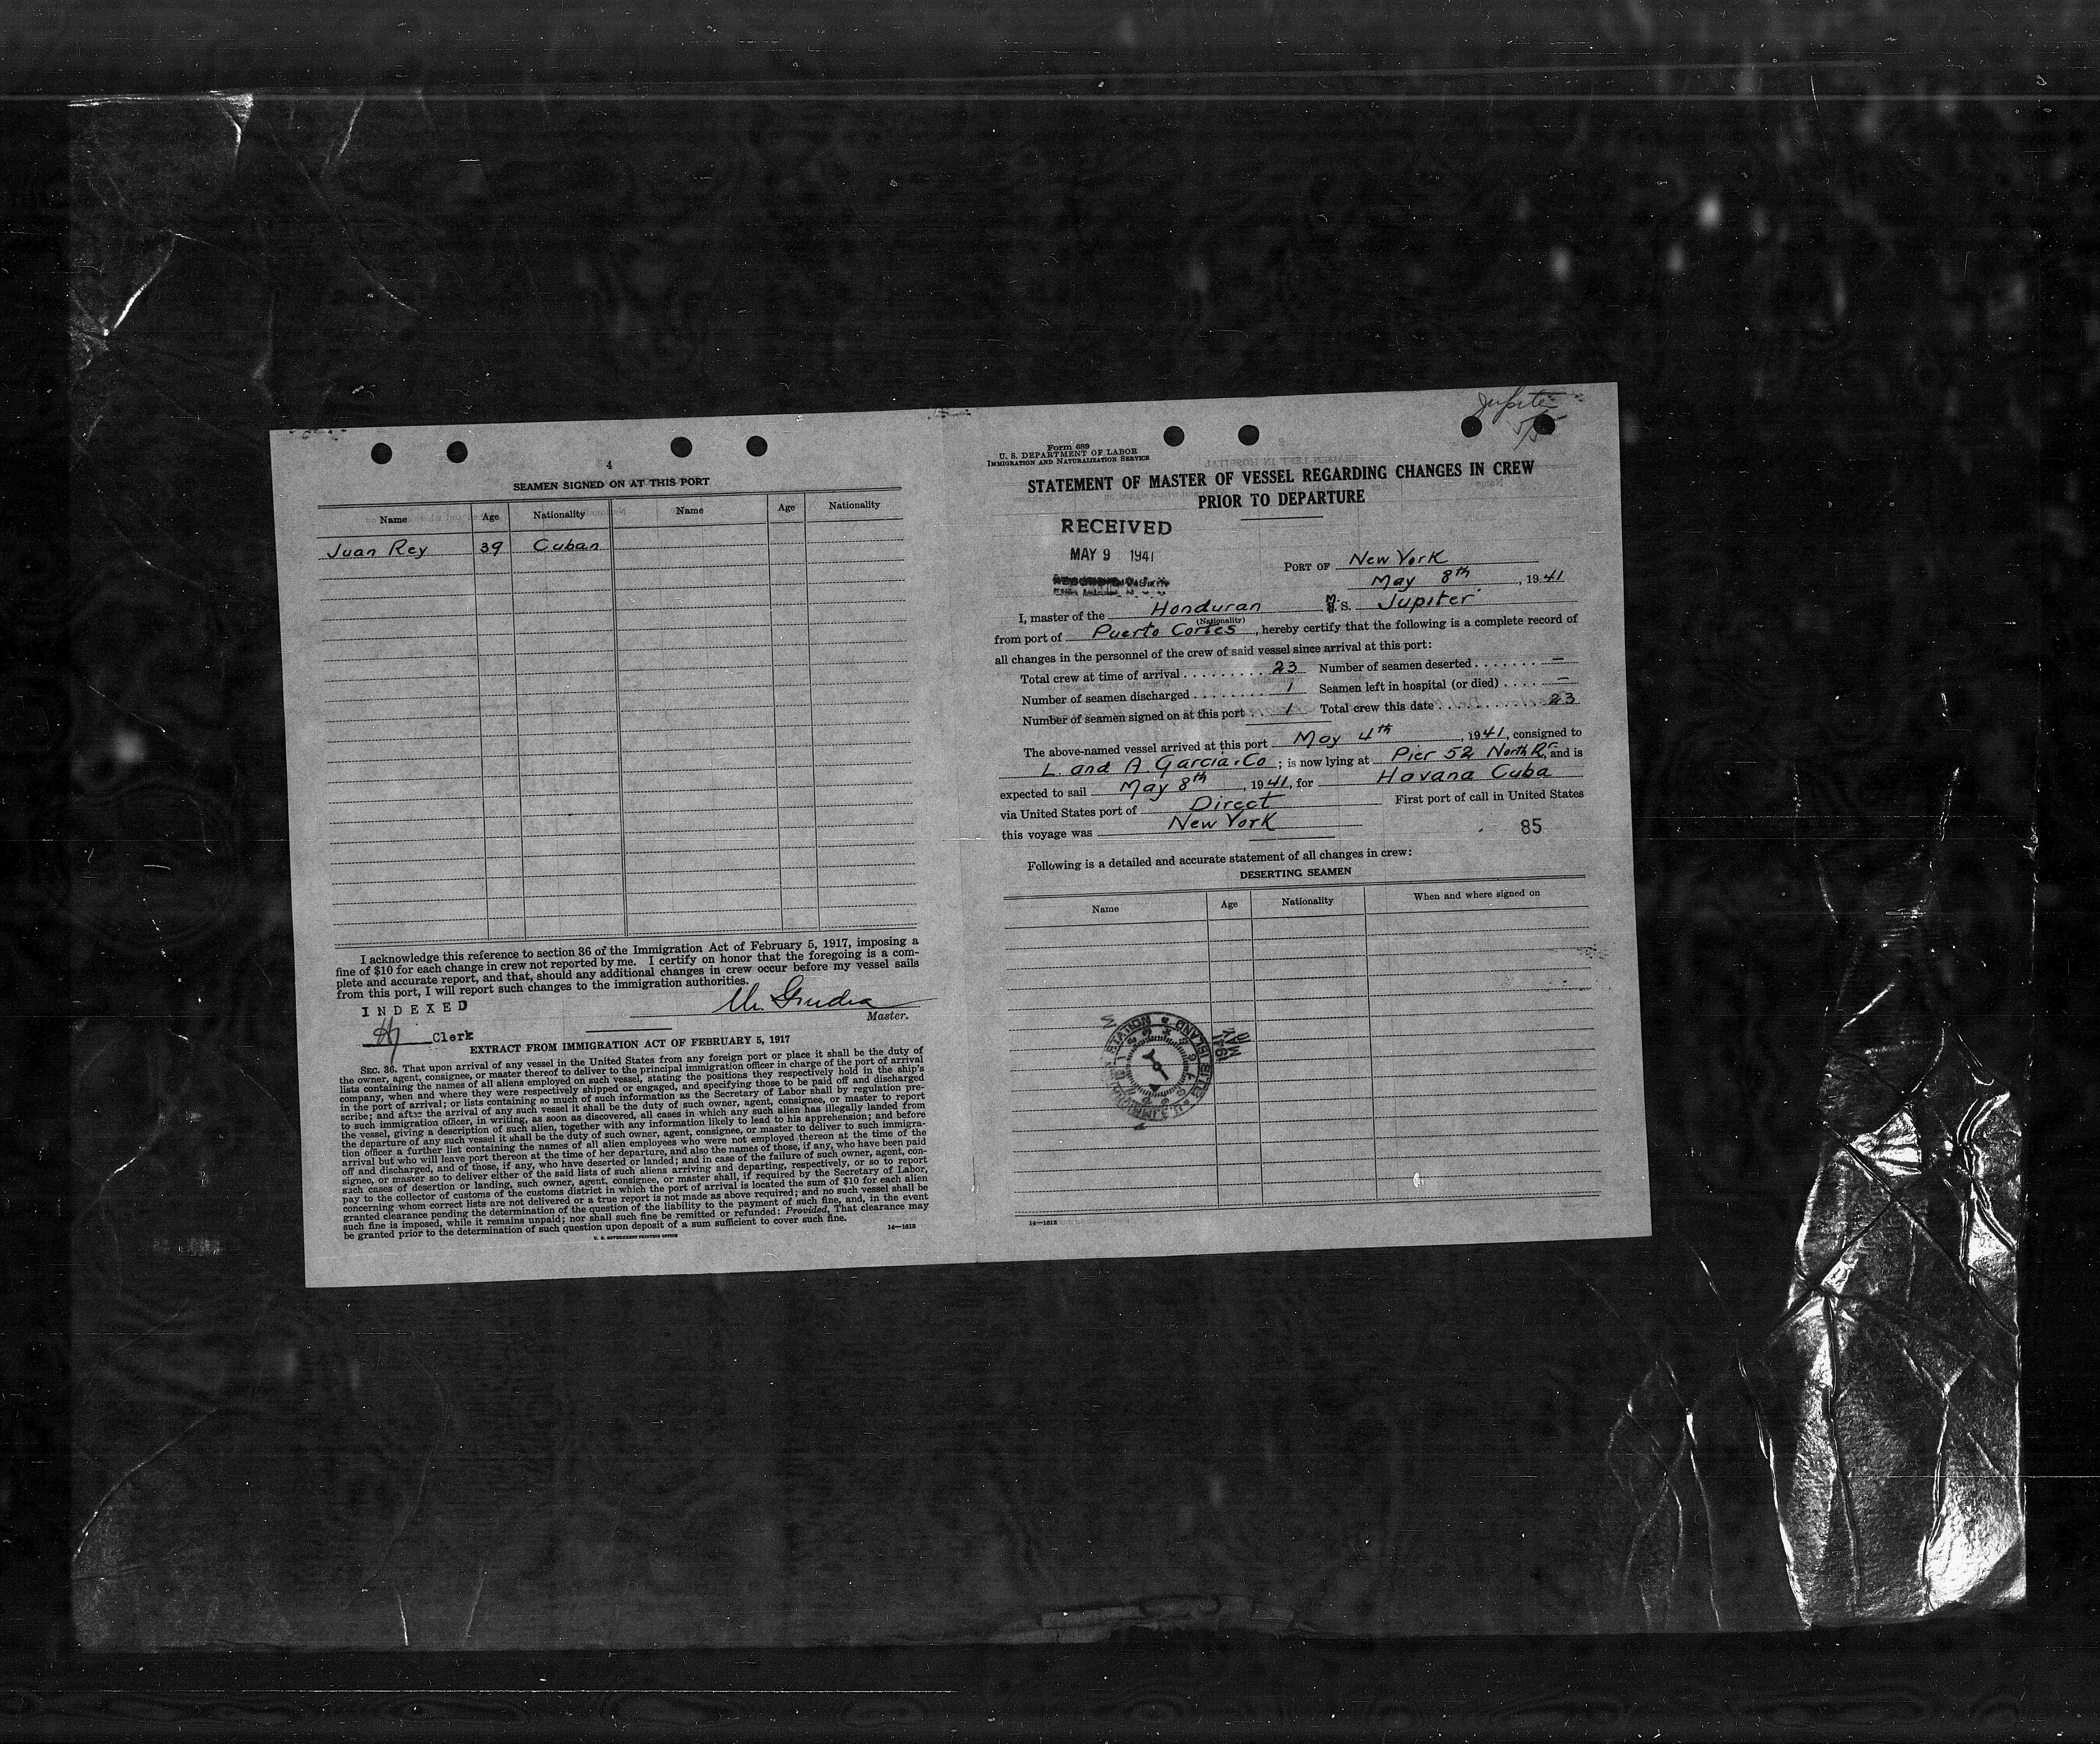 4
SEAMEN SIGNED ON AT THIS PORT
Name Age Nationality Name Age Nationality
Juan Rey 39 Cuban
I acknowledge this reference to section 36 of the Immigration Act of February 5, 1917, imposing a
fine of $10 for each change in crew not reported by me. I certify on honor that the foregoing is a com-
plete and accurate report, and that, should any additional changes in crew occur before my vessel sails
from this port, I will report such changes to the immigration authorities.
INDEXED
Master.
Clerk
EXTRACT FROM IMMIGRATION ACT OF FEBRUARY 5, 1917
SEC. 36. That upon arrival of any vessel in the United States from any foreign port or place it shall be the duty of
the owner, agent, consignee, or master thereof to deliver to the principal immigration officer in charge of the port of arrival
lists containing the names of all aliens employed on such vessel, stating the positions they respectively hold in the ship's
company, when and where they were respectively shipped or engaged, and specifying those to be paid off and discharged
in the port of arrival; or lists containing so much of such information as the Secretary of Labor shall by regulation pre-
scribe; and after the arrival of any such vessel it shall be the duty of such owner, agent, consignee, or master to report
to such immigration officer, in writing, as soon as discovered, all cases in which any such alien has illegally landed from
the vessel, giving a description of such alien, together with any information likely to lead to his apprehension; and before
the departure of any such vessel it shall be the duty of such owner, agent, consignee, or master to deliver to such immigra-
tion officer a further list containing the names of all alien employees who were not employed thereon at the time of the
arrival but who will leave port thereon at the time of her departure, and also the names of those, if any, who have been paid
off and discharged, and of those, if any, who have deserted or landed; and in case of the failure of such owner, agent, con-
signee, or master so to deliver either of the said lists of such aliens arriving and departing, respectively, or so to report
such cases of desertion or landing, such owner, agent, consignee, or master shall, if required by the Secretary of Labor,
pay to the collector of customs of the customs district in which the port of arrival is located the sum of $10 for each alien
concerning whom correct lists are not delivered or a true report is not made as above required; and no such vessel shall be
granted clearance pending the determination of the question of the liability to the payment of such fine, and, in the event
such fine is imposed, while it remains unpaid; nor shall such fine be remitted or refunded: Provided, That clearance may
be granted prior to the determination of such question upon deposit of a sum sufficient to cover such fine.
U. S. GOVERNMENT PRINTING OFFICE 14—1612
Jupiter
Form 689
U. S. DEPARTMENT OF LABOR
IMMIGRATION AND NATURALIZATION SERVICE
STATEMENT OF MASTER OF VESSEL REGARDING CHANGES IN CREW
PRIOR TO DEPARTURE
RECEIVED
MAY 9 1941
PORT OF New York
May 8th, 1941
I, master of the Honduran M. S. Jupiter
(Nationality)
from port of Puerto Cortes, hereby certify that the following is a complete record of
all changes in the personnel of the crew of said vessel since arrival at this port:
Total crew at time of arrival . . . . . . . . . 23 Number of seamen deserted . . . . . . . —
Number of seamen discharged . . . . . . . 1 Seamen left in hospital (or died) . . . . —
Number of seamen signed on at this port . . 1 Total crew this date . . . . . . . . . . 23
The above-named vessel arrived at this port May 4th, 1941, consigned to
L. and A. Garcia & Co; is now lying at Pier 52 North Rr, and is
expected to sail May 8th, 1941, for Havana Cuba
via United States port of Direct First port of call in United States
this voyage was New York
85
Following is a detailed and accurate statement of all changes in crew:
DESERTING SEAMEN
Name Age Nationality When and where signed on
ELLIS ISLAND STATION
MAY 9 1941
14—1612